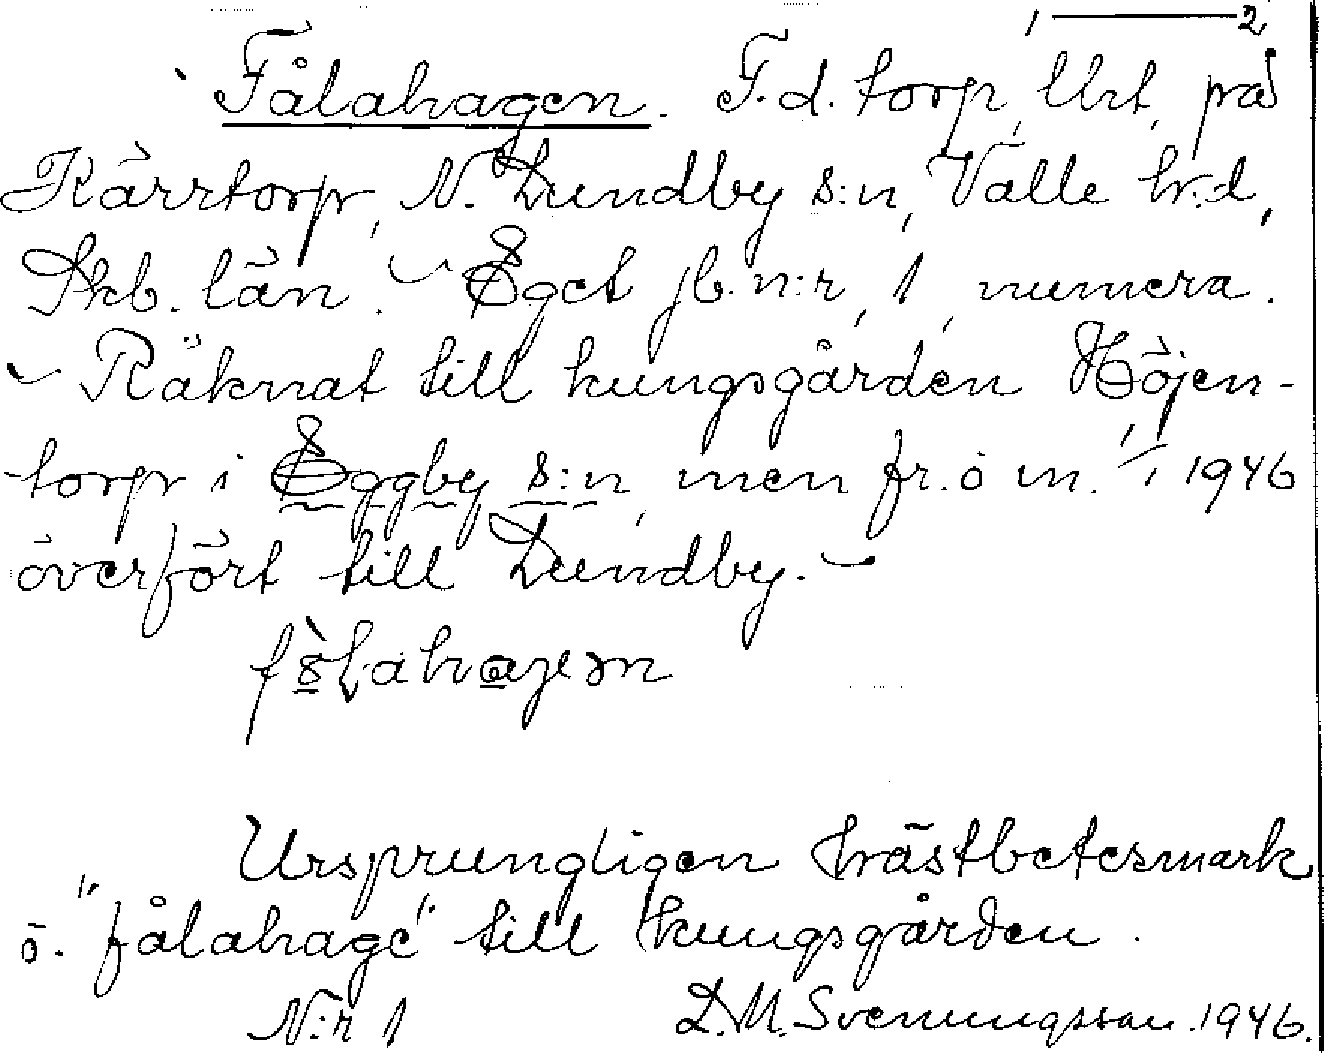 1 — 2
Fålahagen. F.d. torp, Urt, på
Kärrtorp, N. Lundby s:n, Valle hrd,
Skb. län. ~ Eget jb. n:r, 1, numera.
~ Räknat till kungsgården Höjen-
torp i Eggby s:n, men fr. o m. 1/1 1946
överfört till Lundby. ~
Ursprungligen hästbetesmark
o. "fålahage" till kungsgården.
N:r 1 D.M. Svenungsson. 1946.